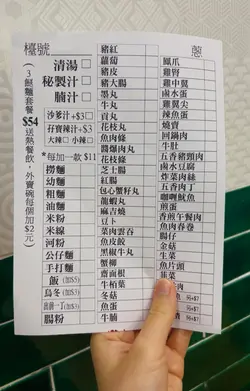 檯號
(3餸麵套餐 $54 送熱餐飲，外賣碗每個加$2元)
清湯
秘製汁
腩汁
沙爹汁+$3
孖寶辣汁+$3
大辣 小辣
*每加一款 $11
撈麵
幼麵
粗麵
油麵
米粉
米線
河粉
公仔麵
手打麵
飯 (加$5)
烏冬(加$3)
出前一丁(加$3)
腸粉
豬紅
蘿蔔
豬皮
豬大腸
墨丸
牛丸
貢丸
花枝丸
魚肉丸
醬爆肉丸
花枝條
魚肉條
芝士腸
紅腸
包心墨魷丸
龍蝦丸
麻吉燒
豆卜
菜肉雲吞
魚皮餃
黑椒牛丸
蟹柳
齋面根
牛栢葉
冬菇
魚蛋
牛腩
蔥
鳳爪
雞腎
雞中翼
鹵水蛋
雞翼尖
辣魚蛋
燒賣
回鍋肉
牛肚
五香豬頸肉
鹵水豆腐
炸菜肉絲
五香肉丁
咖喱魷魚
煎蛋
香煎午餐肉
魚肉春卷
腸仔
金菇
生菜
魚片頭
韮菜